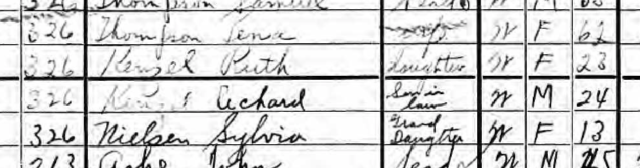 326 Thompson Samuel Head M
326 Thompson Lena W F 62
326 Kenzel Ruth Daughter W F 23
326 Son in law W M 24
326 Nielsen Sylvia Grand Daughter W F 13
213 John Head W M